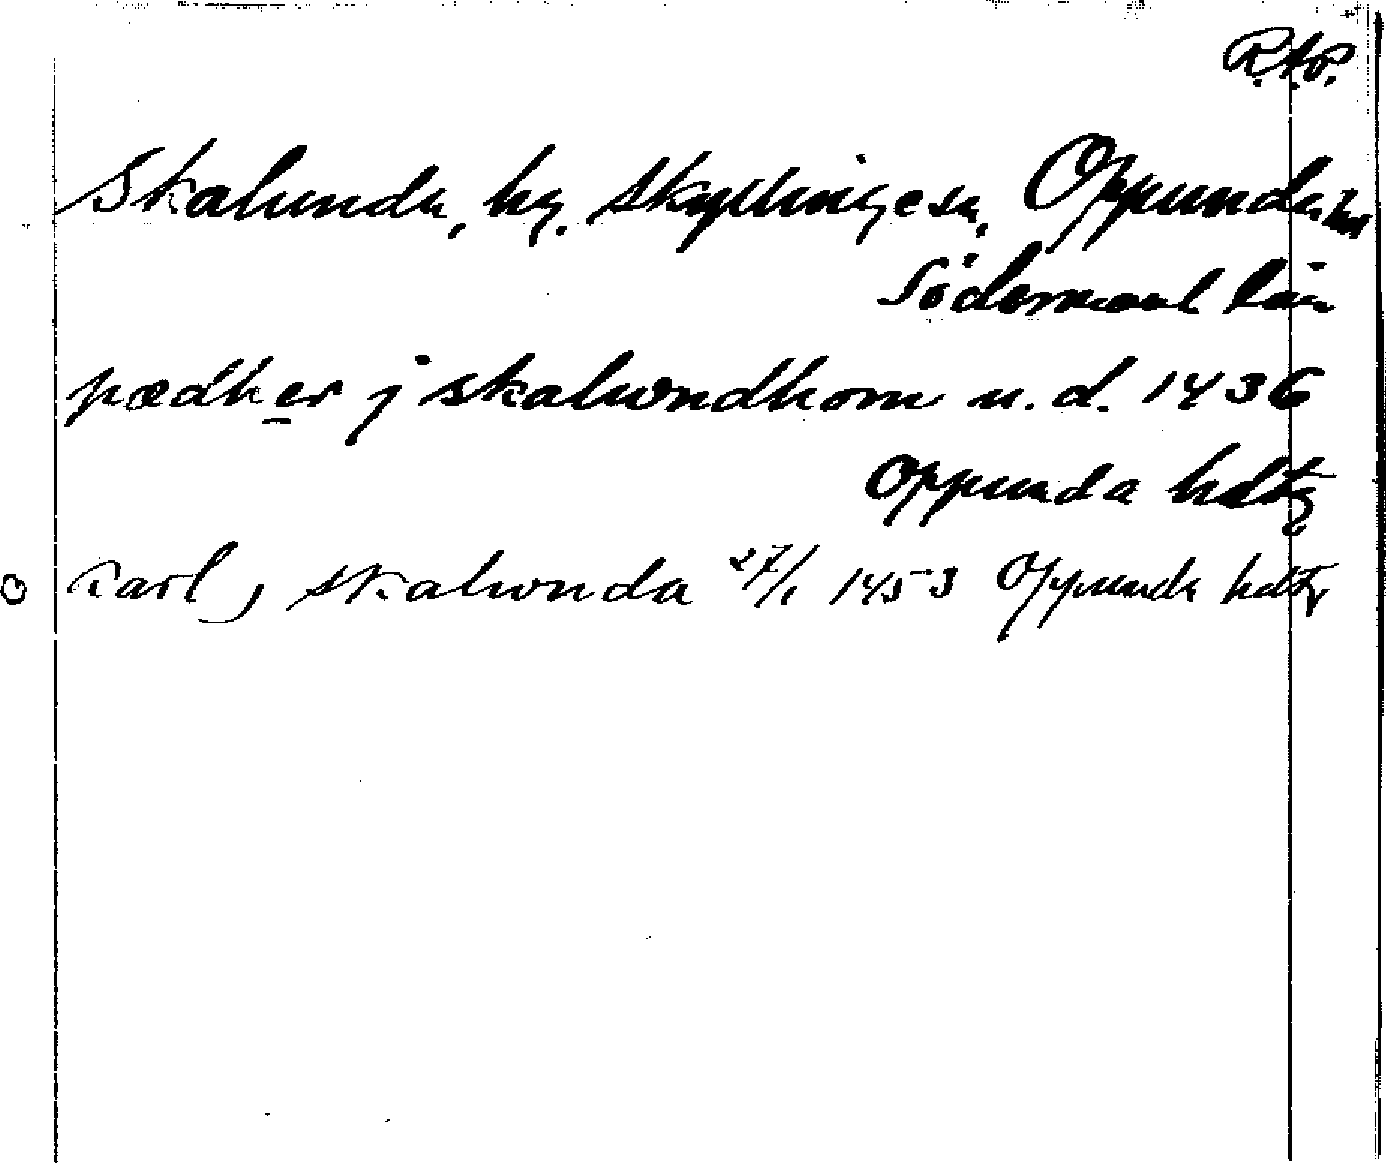 R.A.P.
Skalunda, by, Skyllinge sn, Oppunda hd
Södermanl län
pædher j skalwndhom u. d. 1436
Oppunda hdtg
karl j skalwnda 27/1 1453 Oppunda hdtg